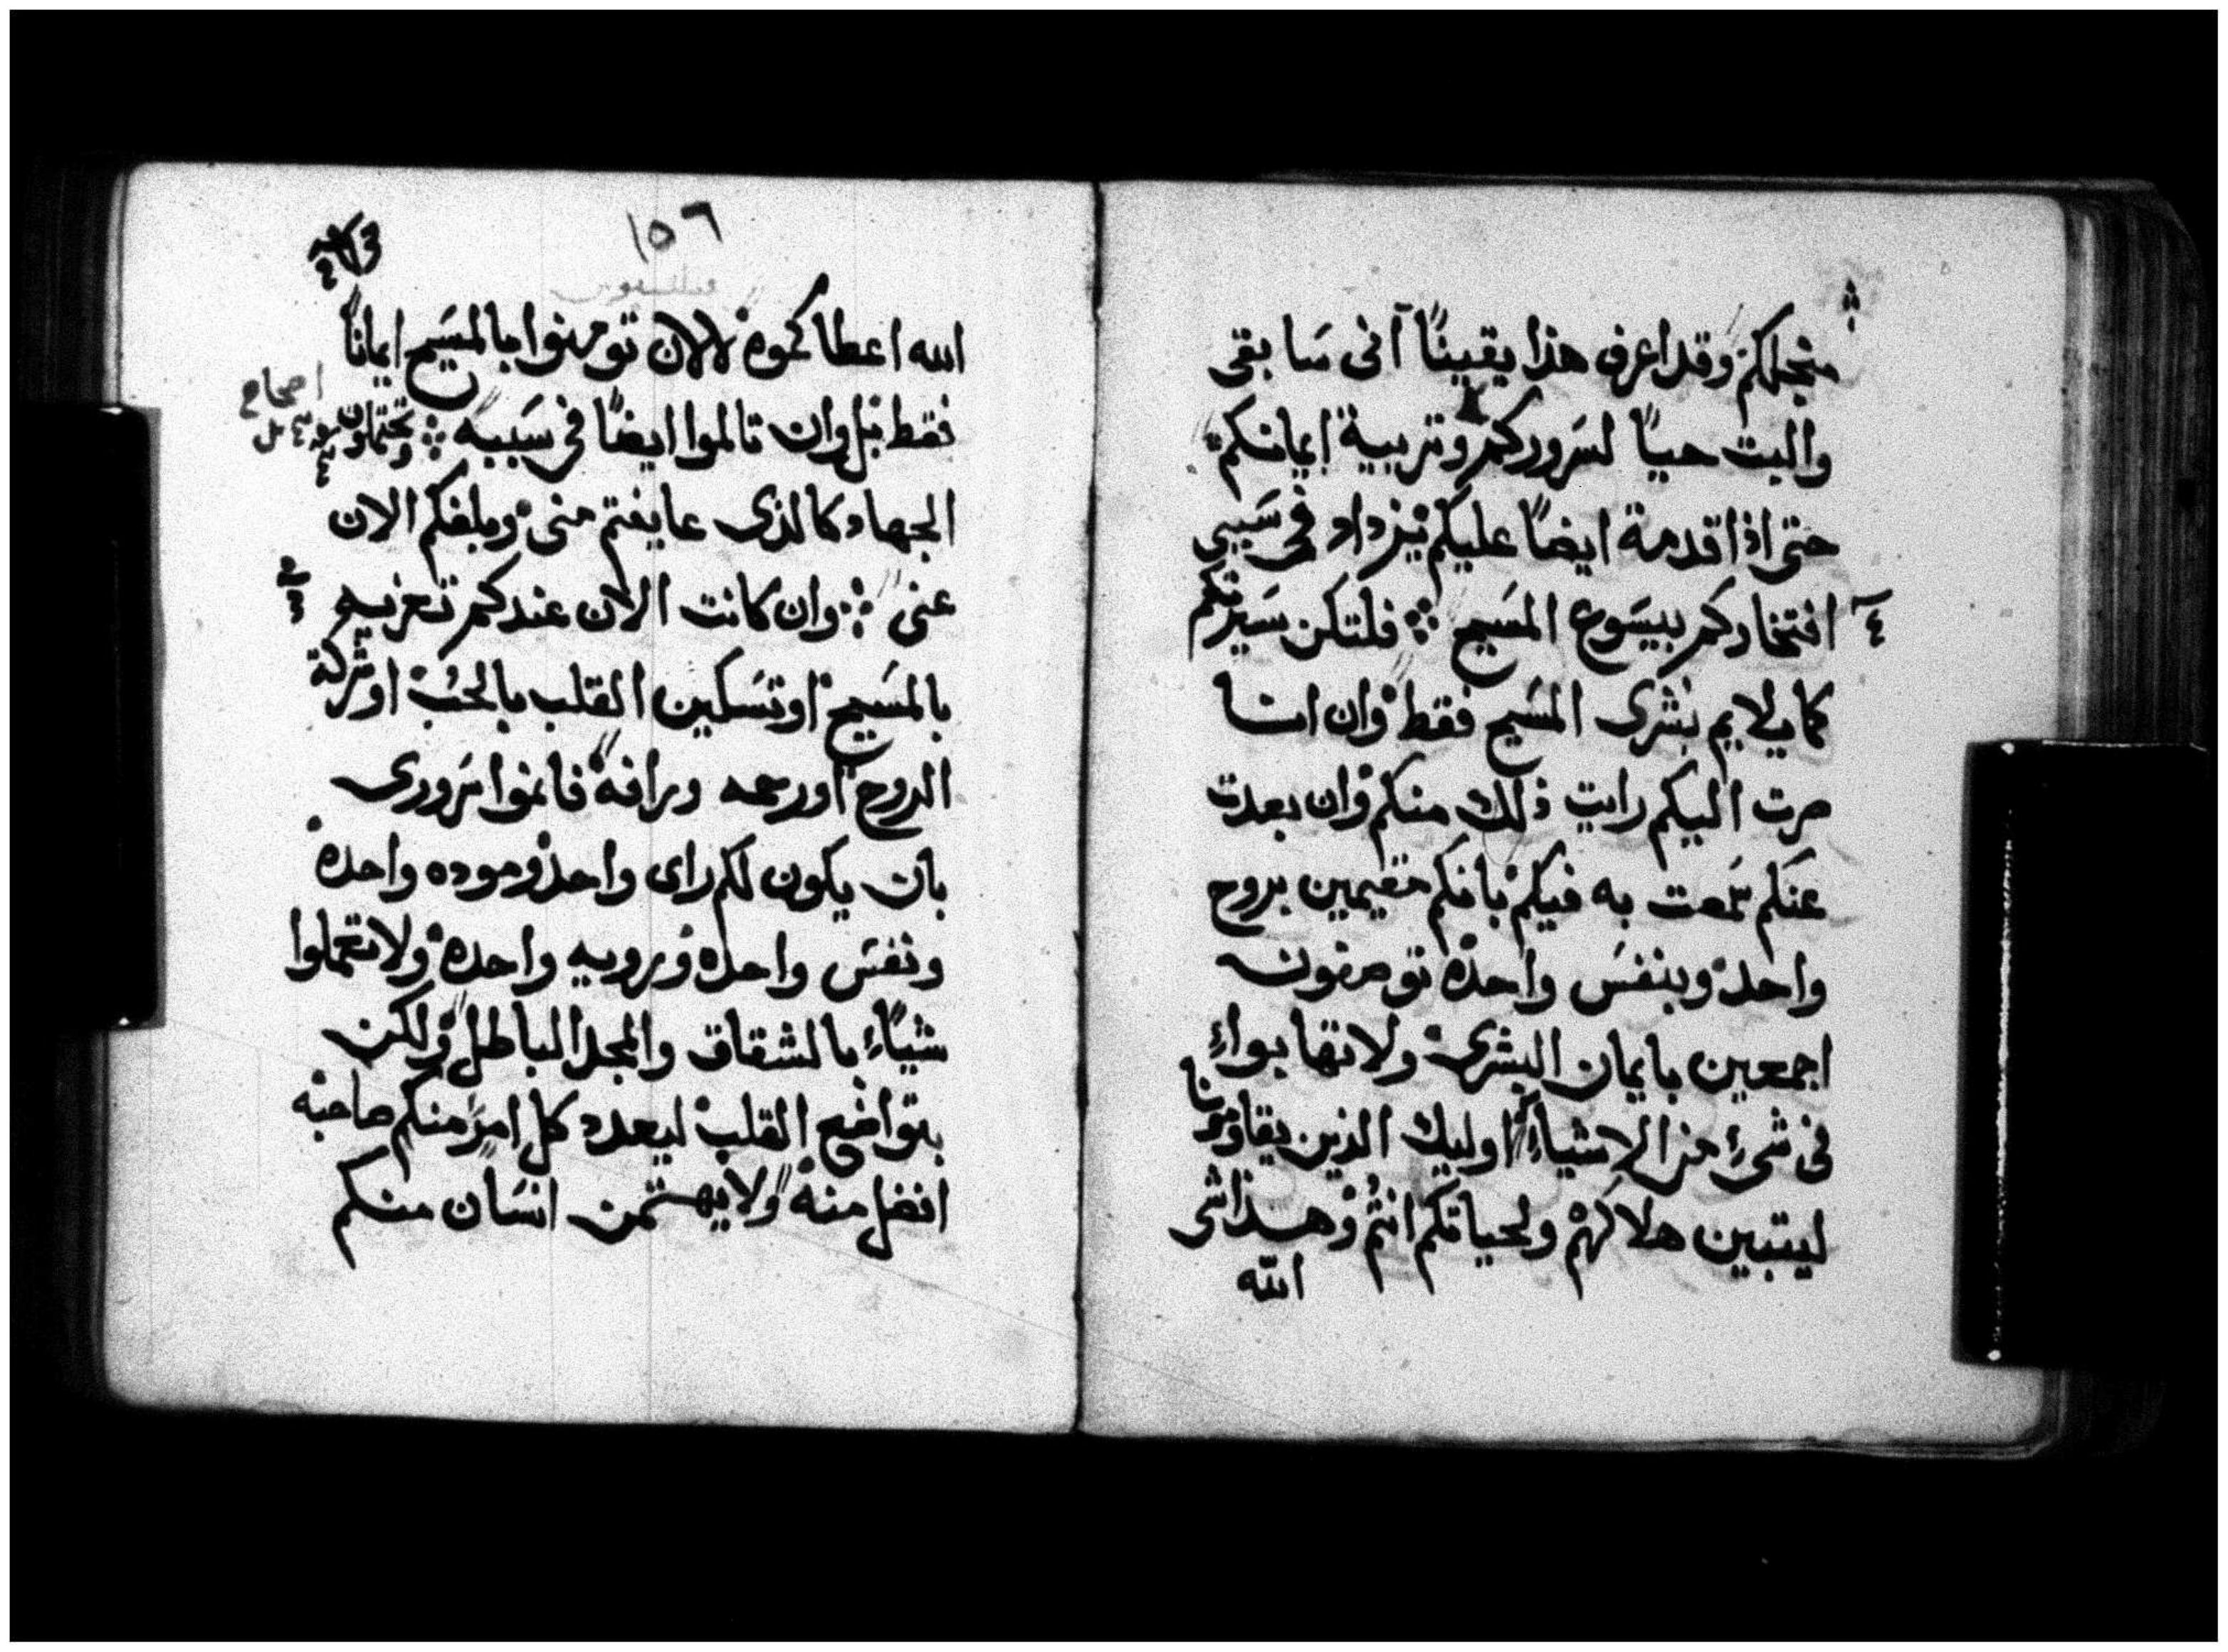 منجلكم وقد اعرف هذا يقينًا انى سابقى
والبت حيًا لسروركم وتربية ايمانكم
حتى اذا قدمة ايضًا عليكم يزداد فى سببى
افتخاركم بيسوع المسيح فلتكن سيرتكم
كما يلايم بشرى المسيح فقط وان انا
صرت اليكم رايت ذلك منكم وان بعدت
عنكم سمعت به فيكم بانكم مقيمين بروح
واحد وبنفس واحدة تومنون
اجمعين بايمان البشرى ولا تهابواء
فى شىء من الاشياء اوليك الذين يقاومونا
ليتبين هلاكهم ولحياتكم انتم وهذا شى
الله
١٥٦
الله اعطاكموه لا لان تومنوا بالمسيح ايمانًا
فقط بل وان تالموا ايضًا فى سببه وتحتملون
اصحاح
الجهاد كالذى عاينتم منى وبلغكم الان
عنى وان كانت الان عندكم تعزيه
بالمسيح او تسكين القلب بالحب او شركة
الروح او رحمه ورافه فاتموا سرورى
بان يكون لكم راى واحد وموده واحده
ونفس واحده ورويه واحده ولا تعملوا
شيًاء بالشقاق والمجد الباطل ولكن
بتواضع القلب ليعدد كل امرء منكم صاحبه
افضل منه ولا يهتمن انسان منكم